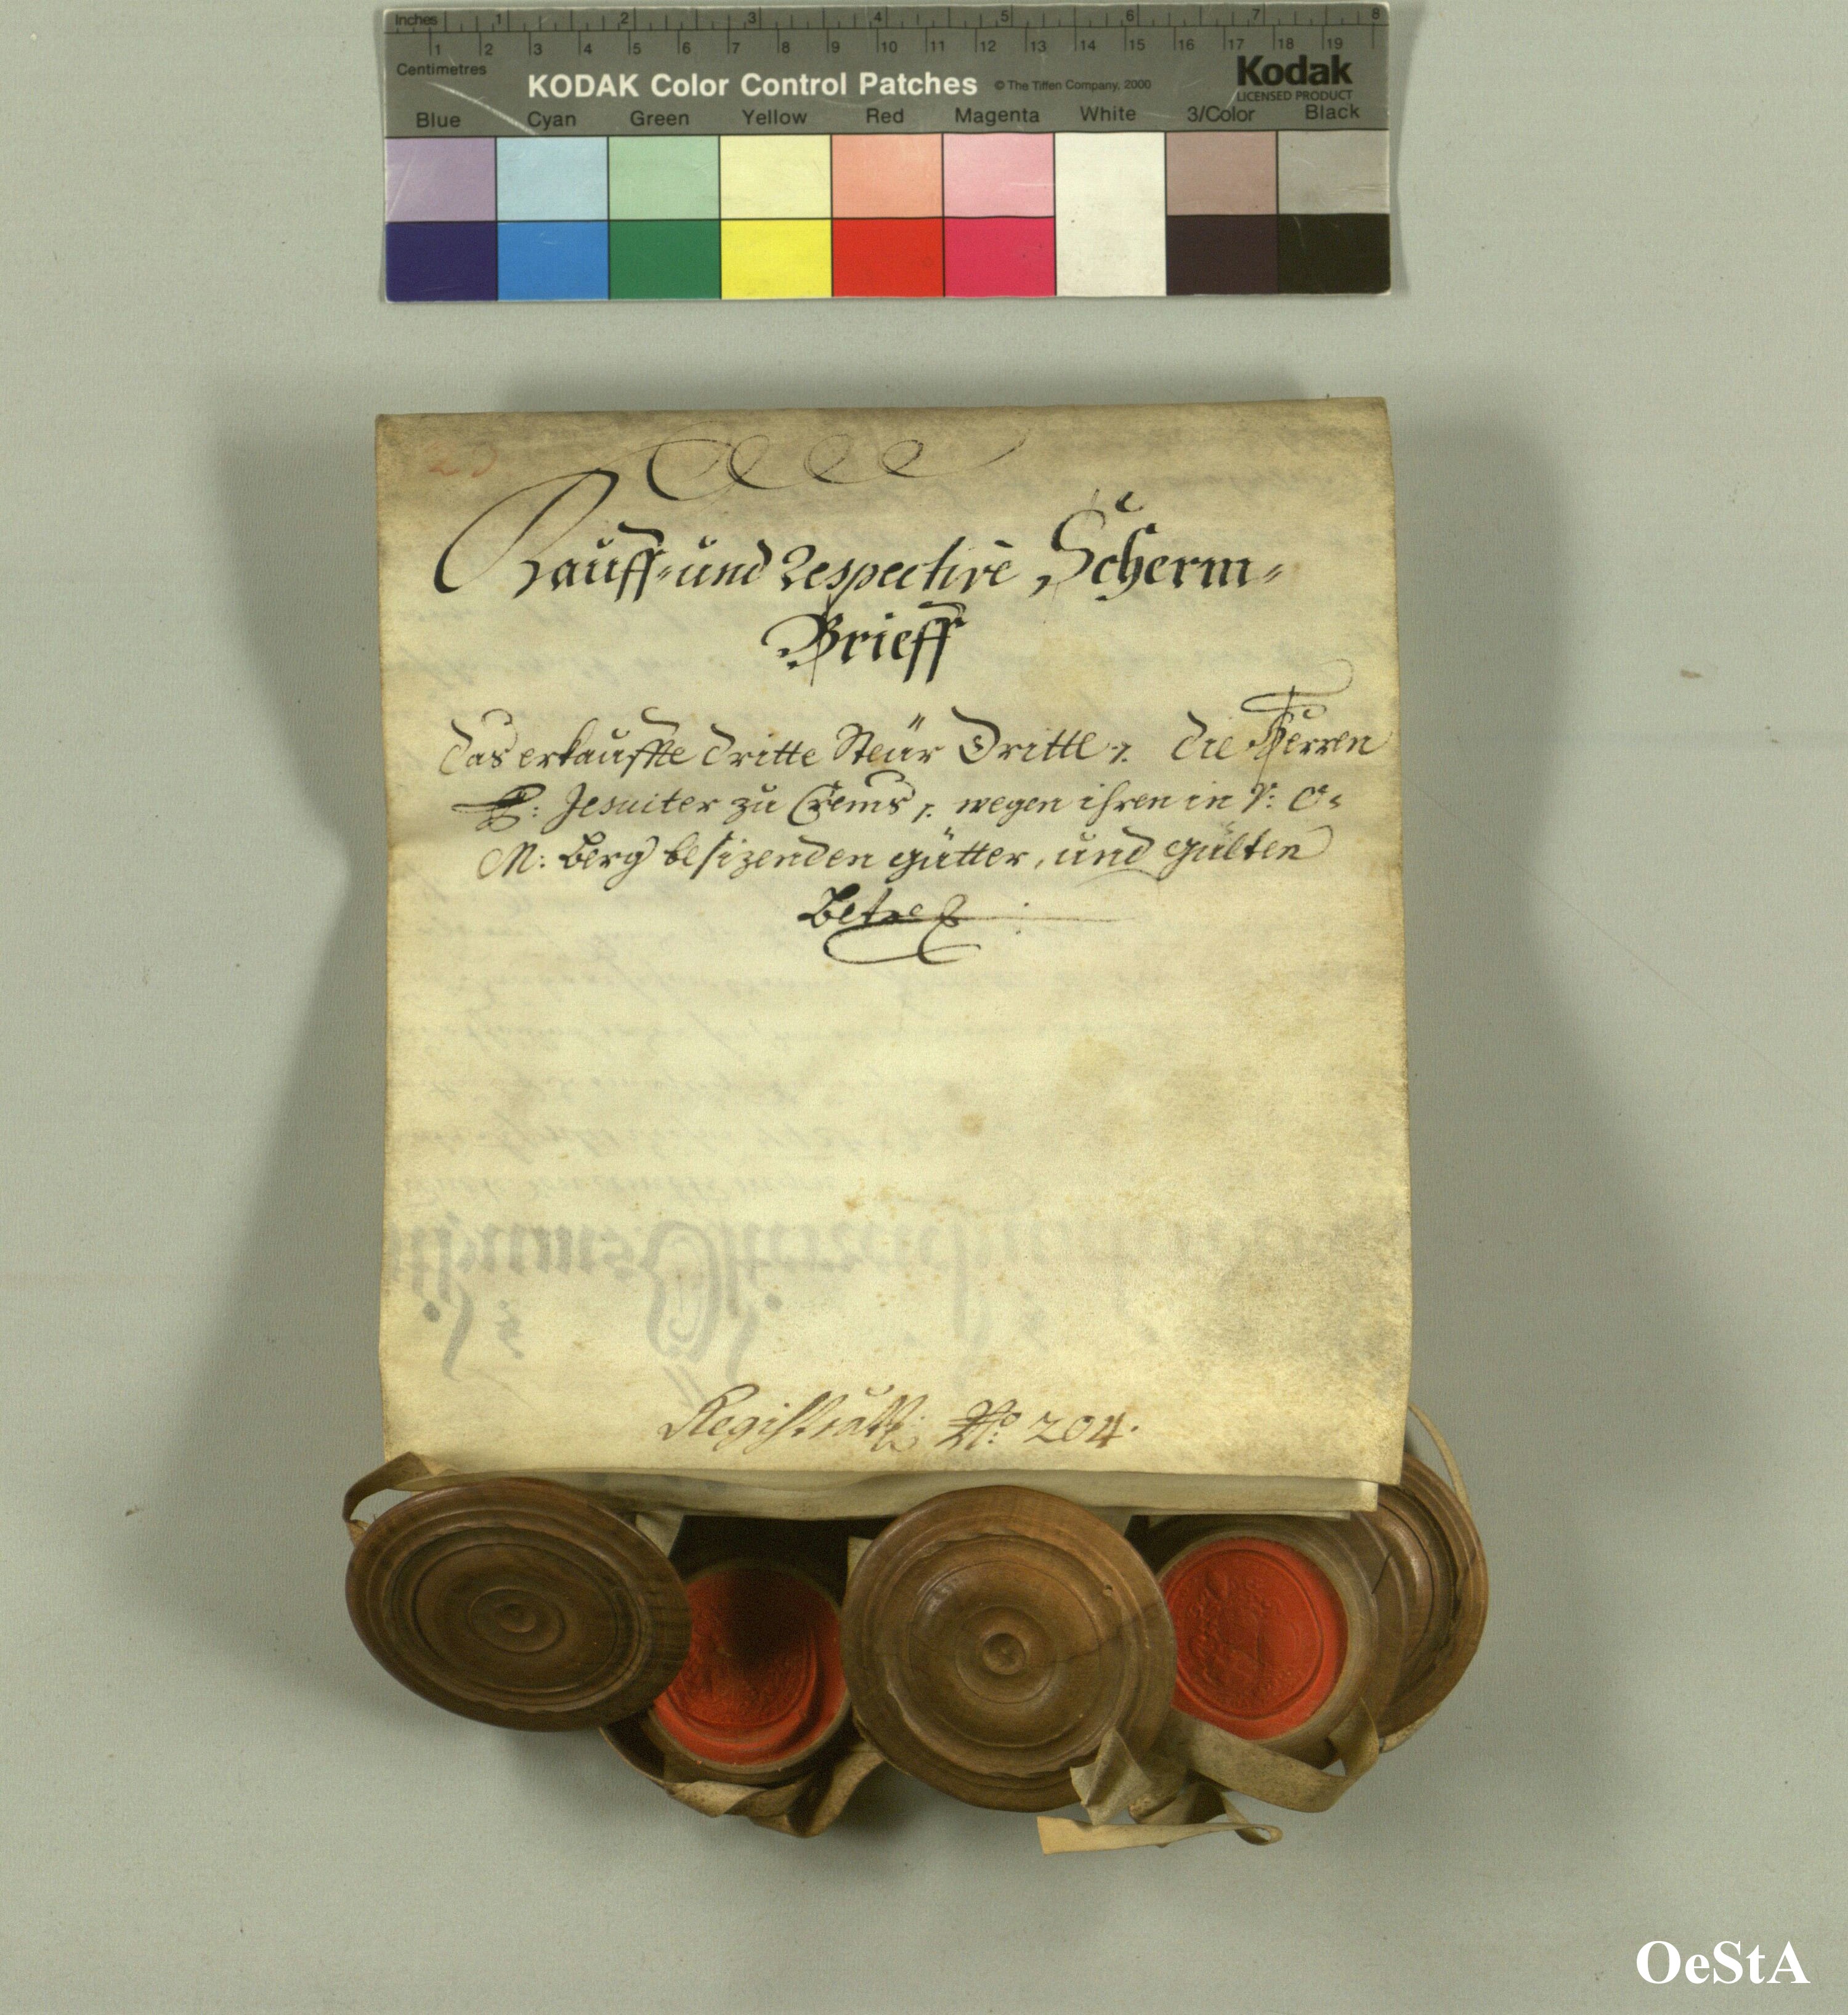 Inches 1 2 3 4 5 6 7 8
1 2 3 4 5 6 7 8 9 10 11 12 13 14 15 16 17 18 19
Centimetres
KODAK Color Control Patches © The Tiffen Company, 2000 Kodak
LICENSED PRODUCT
Blue Cyan Green Yellow Red Magenta White 3/Color Black
23
Kauff- und Respectivè Scherm-
Brieff
Das erkauffte dritte Steür Drittl. die Herren
P: Jesuiter zu Crems, wegen ihren in V: O:
M: Berg besizenden gütter, und gülten
Betre
Registratt: No: 204.
OeStA